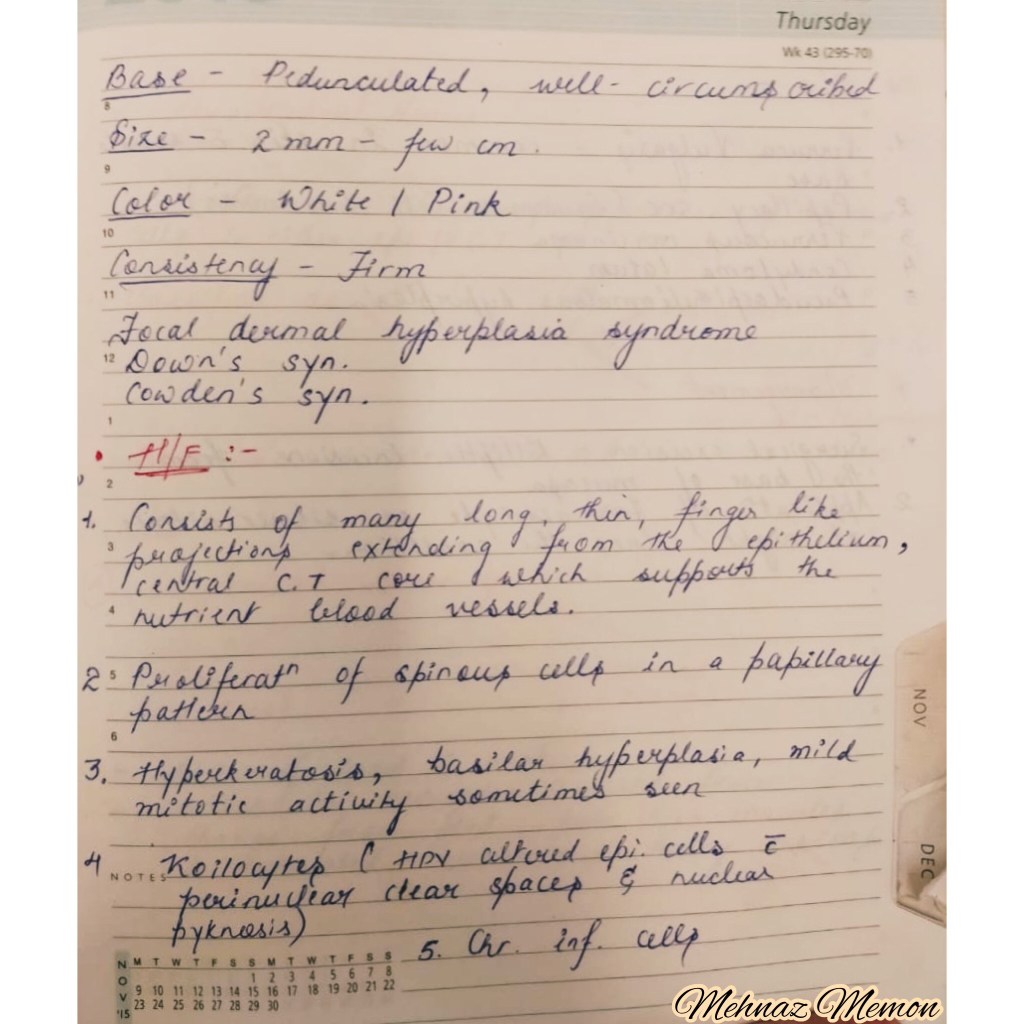 Thursday
Wk 43 (295-70)
Base - Pedunculated, well-circumscribed
8
Size - 2 mm - few cm.
9
Color - White / Pink
10
Consistency - Firm
11
Focal dermal hyperplasia syndrome
12 Down's syn.
Cowden's syn.
1
• H/F :-
2
1. Consists of many long, thin, finger like
3 projections extending from the epithelium,
central C.T core which supports the
4 nutrient blood vessels.
2 5 Proliferatn of spinous cells in a papillary
pattern
6
3. Hyperkeratosis, basilar hyperplasia, mild
mitotic activity sometimes seen
4 NOTES Koilocytes ( HPV altered epi. cells c̄
perinuclear clear spaces & nuclear
pyknosis)
5. Chr. inf. cells
NOV '15
M T W T F S S M T W T F S S
1 2 3 4 5 6 7 8
9 10 11 12 13 14 15 16 17 18 19 20 21 22
23 24 25 26 27 28 29 30
NOV
DEC
Mehnaz Memon